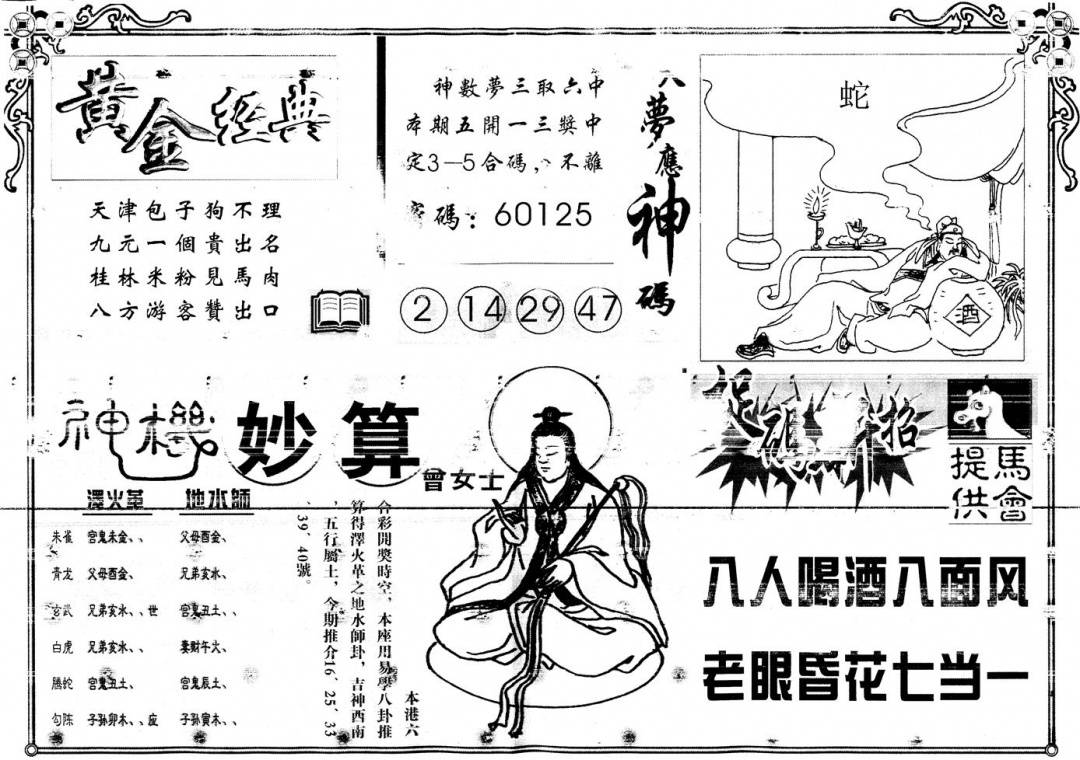 黄金經典
天津包子狗不理
九元一個貴出名
桂林米粉見馬肉
八方游客贊出口
神數夢三取六中
本期五開一三獎中
定3—5合碼，不離
密碼：60125
2 14 29 47
夢應神碼
蛇
酒
神機妙算
曾女士
澤火革 地水師
朱雀 官鬼未金、、 父母酉金、
青龙 父母酉金、 兄弟亥水、
玄武 兄弟亥水、、世 官鬼丑土、、
白虎 兄弟亥水、、 妻财午火、
腾蛇 官鬼丑土、 官鬼辰土、
勾陈 子孙卯木、、应 子孙寅木、、
本港六
合彩開獎時空，本座用易學八卦推
算得澤火革之地水師卦，吉神西南
，五行屬土，今期推介16、25、33
、39、40號。
馬會
提供
八人喝酒八面风
老眼昏花七当一